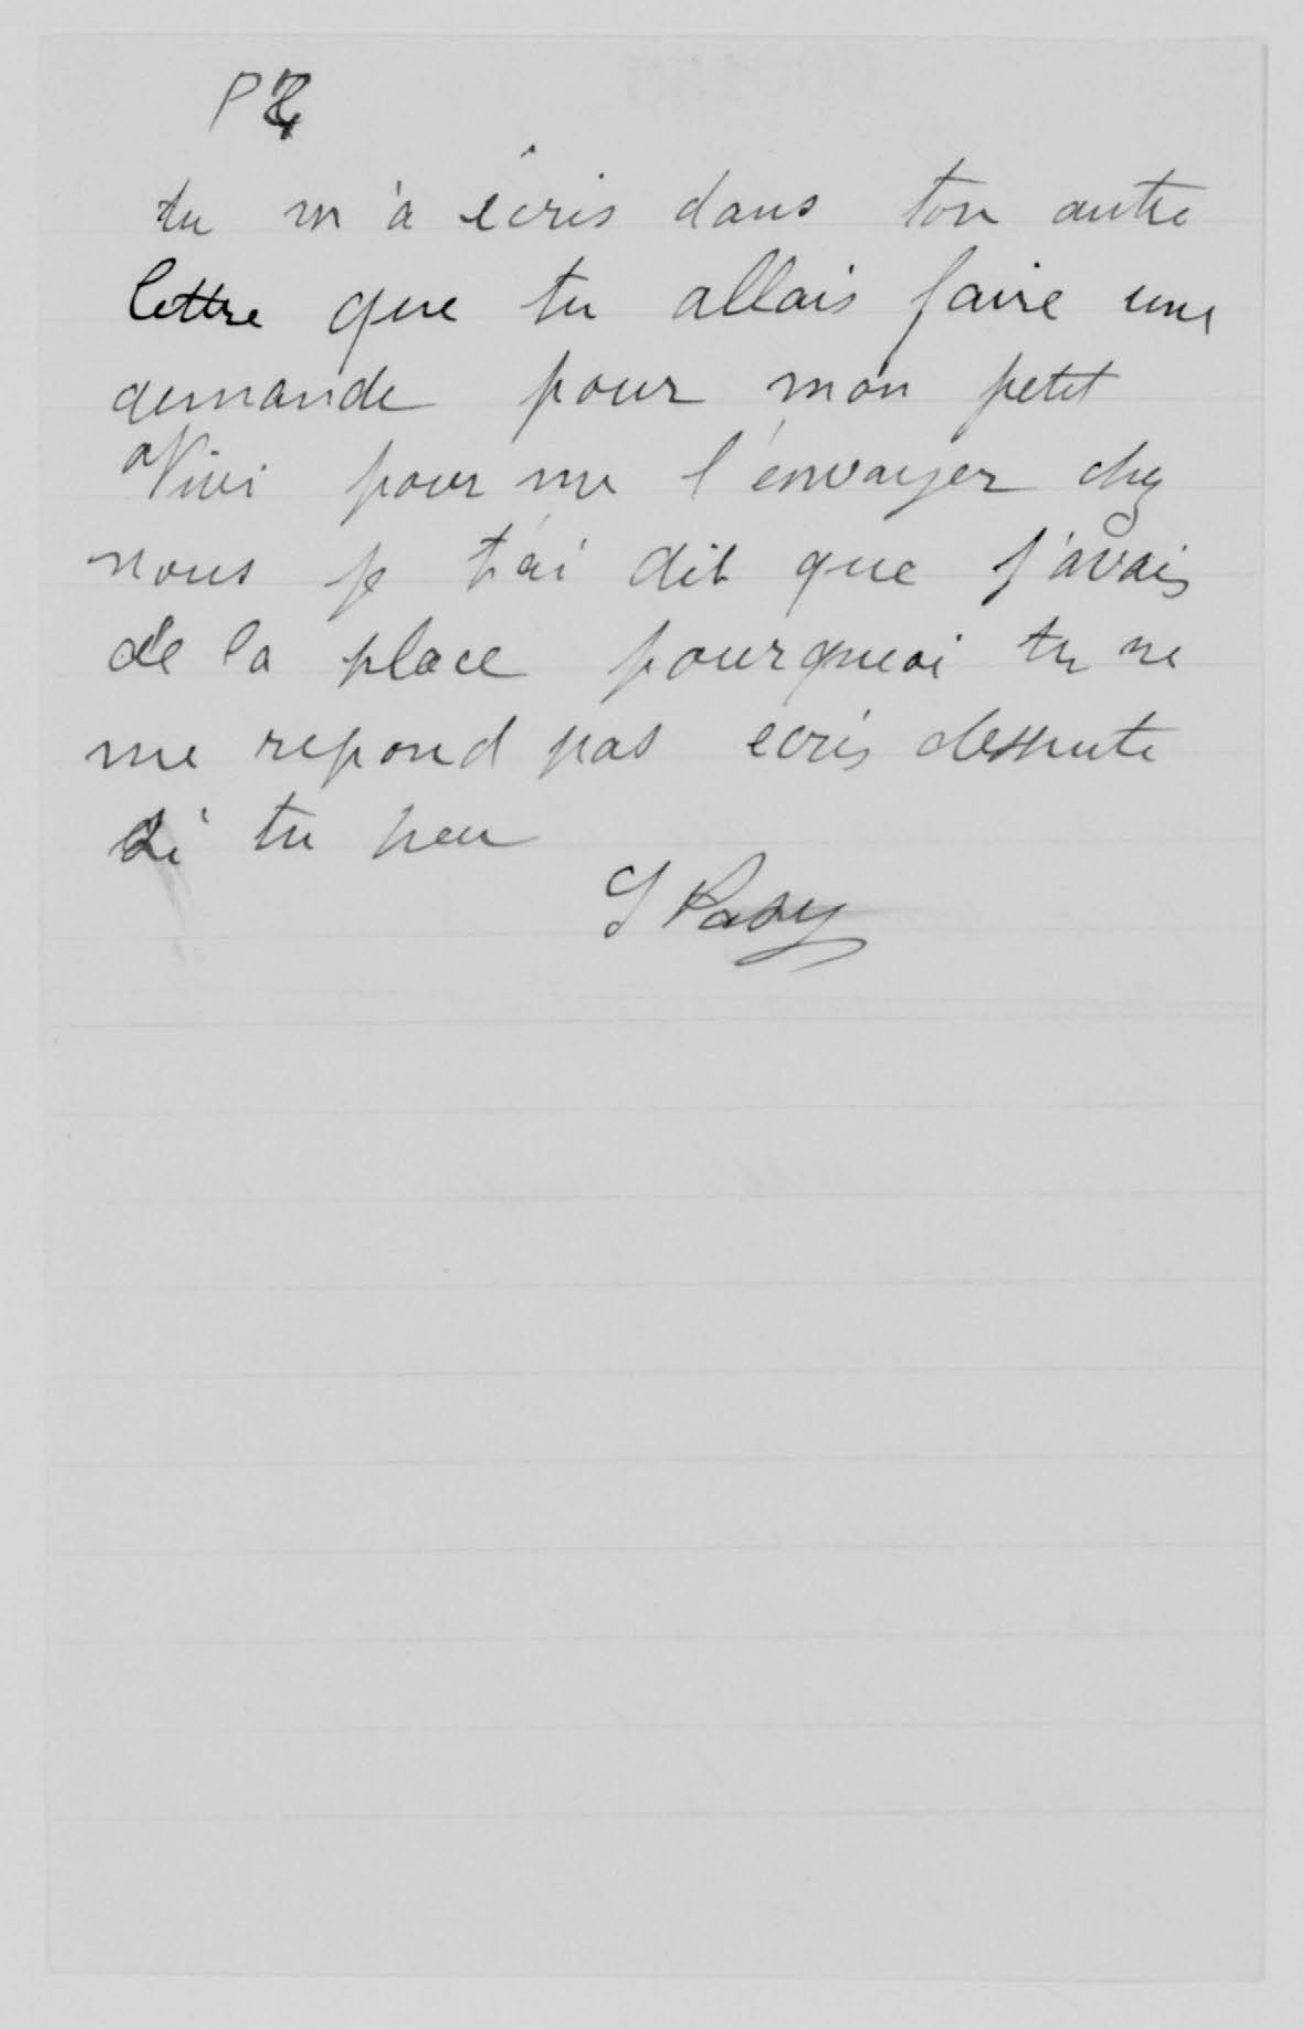 tu m'a écris dans ton autre
lettre que tu allais faire une
demande pour mon petit
Vivi pour me l'envoyer chez
nous je t'ai dit que j'avais
de la place pourquoi tu ne
me repond pas ecris dessuite
si tu peu